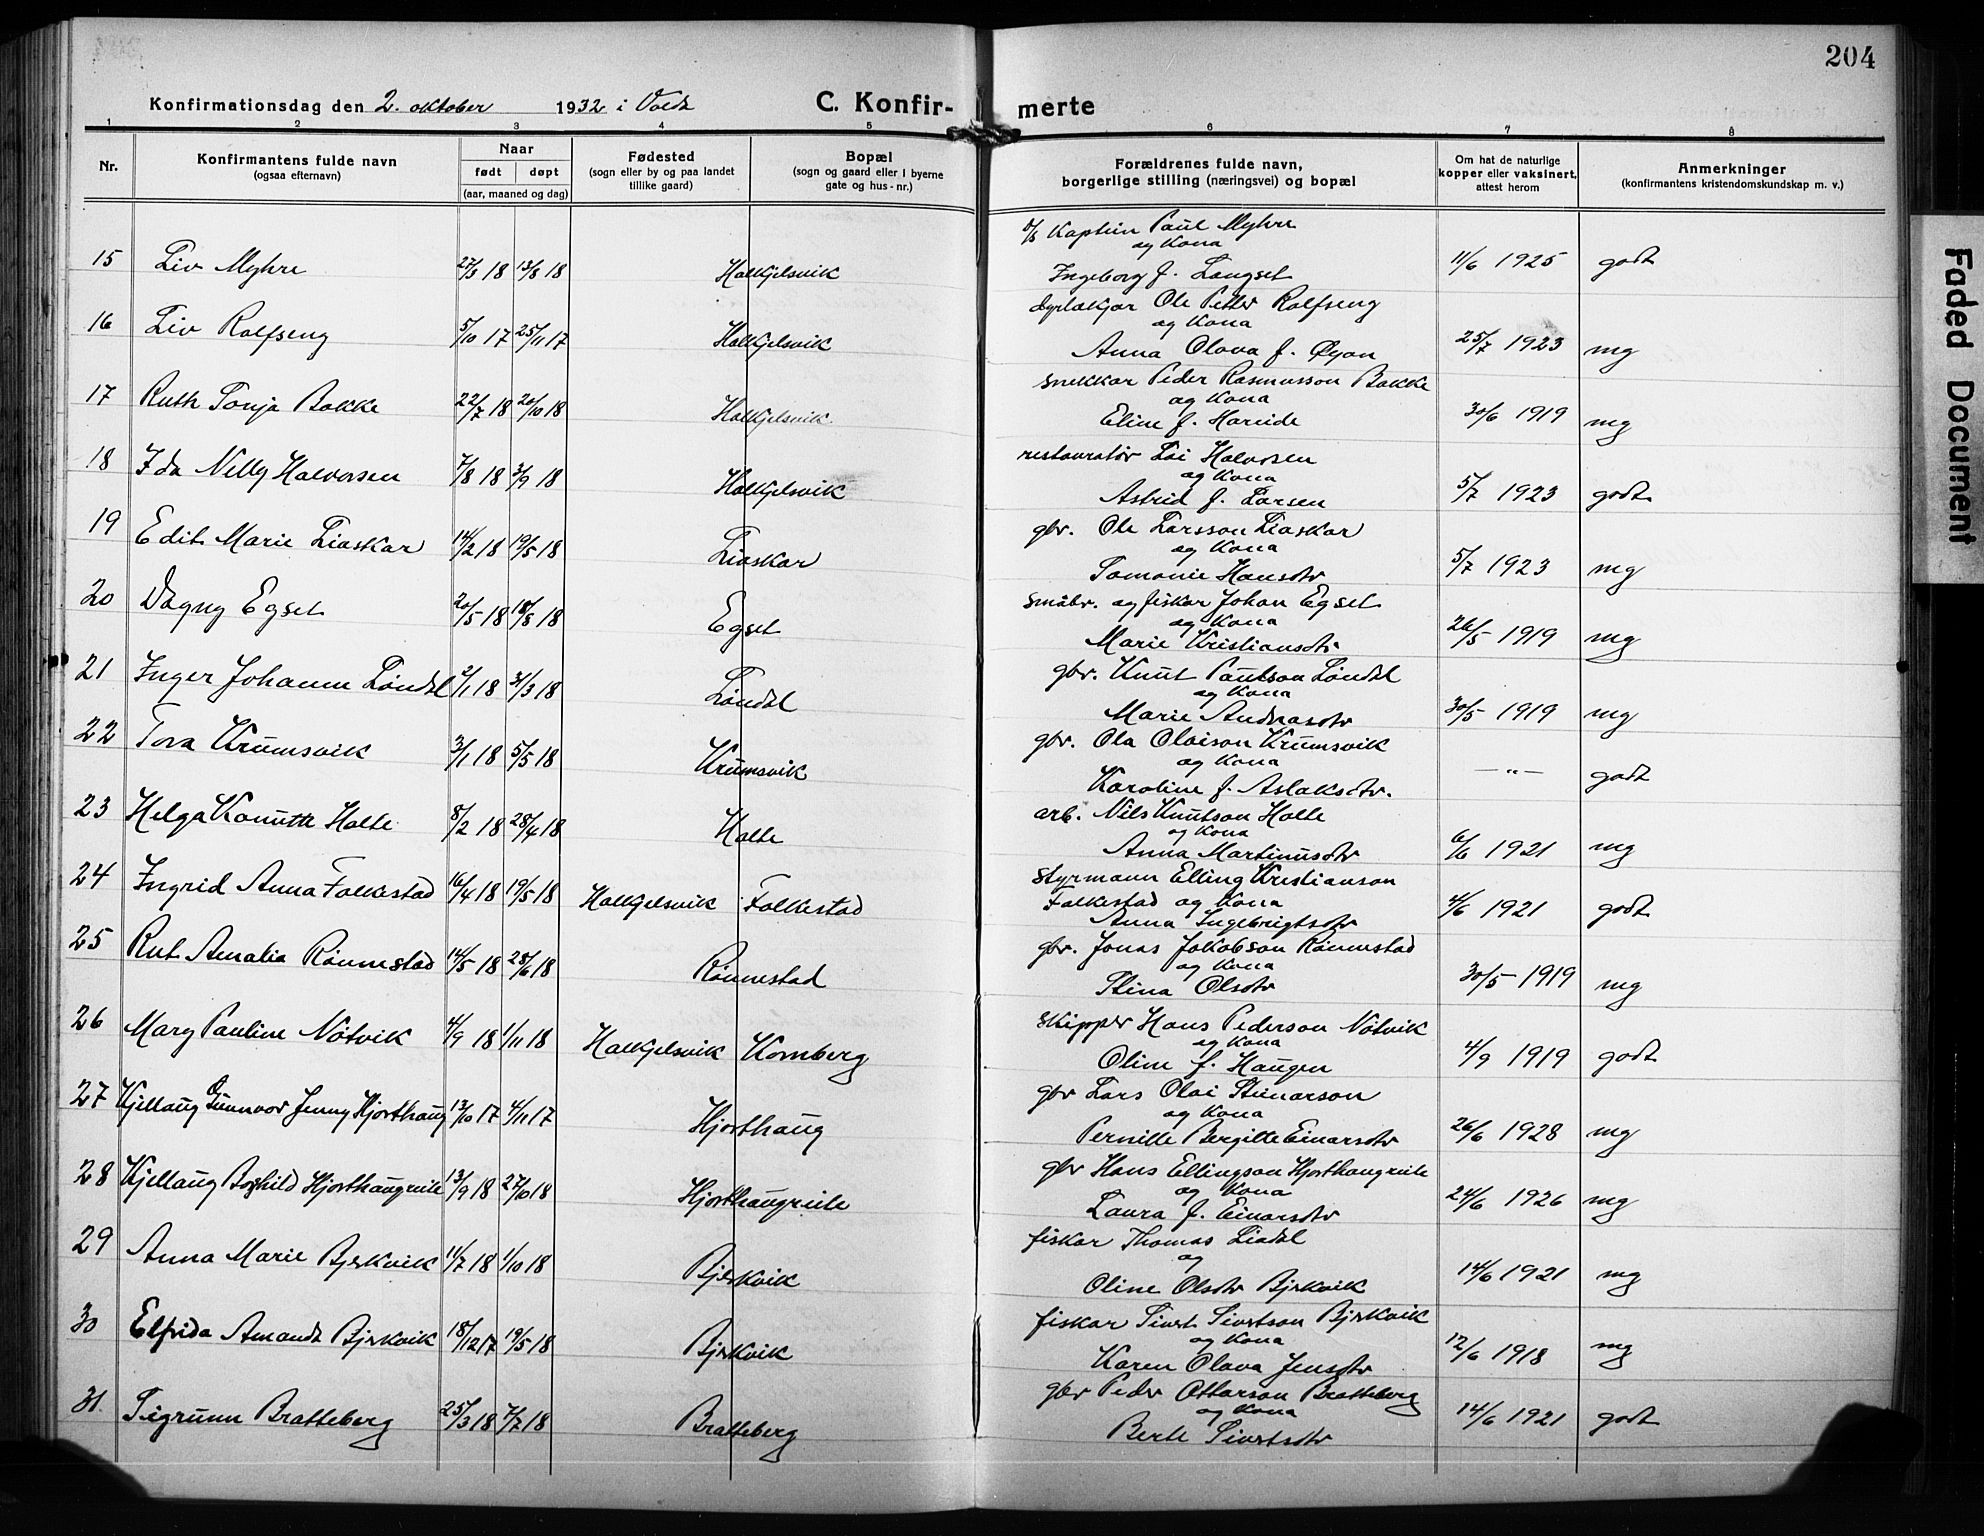 204
Konfirmationsdag den 2. oktober 1932 i Volda C. Konfir- merte
1 2 3 4 5 6 7 8
Nr. Konfirmantens fulde navn (ogsaa efternavn) Naar født døpt (aar, maaned og dag) Fødested (sogn eller by og paa landet tillike gaard) Bopæl (sogn og gaard eller i byerne gate og hus-nr.) Forældrenes fulde navn, borgerlige stilling (næringsvei) og bopæl Om hat de naturlige kopper eller vaksinert, attest herom Anmerkninger (konfirmantens kristendomskundskap m. v.)
d/s Kaptein Paul Myhre
og Kona
15 Liv Myhre 18 13/8 18 Halkjelsvik Ingeborg f. Langset 11/6 1925 godt
dyrlækjar Ole Petter Rolfseng
og Kona
16 Liv Rolfseng 5/10 17 25/11 17 Halkjelsvik Anna Olava f. Øyan 25/7 1923 mg
snekkar Peder Rasmusson Bakke
og Kona
17 Ruth Sonja Bakke 22/7 18 20/10 18 Halkjelsvik Eline f. Hareide 30/6 1919 mg
restauratør Lai Halvorsen
og Kona
18 Ida Nelly Halvorsen 7/8 18 3/9 18 Halkjelsvik Astrid f. Larsen 5/7 1923 godt
gbr. Ole Larsson Liaskar
og Kona
19 Edit Marie Liaskar 14/2 18 19/5 18 Liaskar Tomanie Hansdtr 5/7 1923 mg
småbr. og fiskar Johan Egset
og Kona
20 Dagny Egset 20/5 18 18/8 18 Egset Marie Kristiansdtr 26/5 1919 mg
gbr. Knut Paulson Løndal
og Kona
21 Inger Johanne Løndal 2/1 18 31/3 18 Løndal Marie Andreasdtr 30/5 1919 mg
gbr. Ola Olaison Krumsvik
og Kona
22 Tora Krumsvik 3/1 18 5/5 18 Krumsvik Karoline f. Aslaksdtr. — " — godt
arb. Nils Knutson Holte
og Kona
23 Helga Holte 8/2 18 28/4 18 Holte Anna Martinusdtr 6/6 1921 mg
styrmann Elling Kristianson
Falkestad og Kona
24 Ingrid Anna Folkestad 16/4 18 19/5 18 Halkjelsvik Folkestad Anna Ingebrigtsdtr 4/6 1921 godt
gbr. Jonas Jakobson Rønnestad
og Kona
25 Rut Amalia Rønnestad 14/5 18 18 Rønnestad Stina Olsdtr 30/5 1919 mg
skipper Hans Pederson Nøtvik
og Kona
26 Mary Pauline Nøtvik 4/9 18 1/11 18 Halkjelsvik Kornberg Oline f. Haugen 4/9 1919 godt
gbr Lars Olai Steinarson
og Kona
27 Kjellaug Gunnvor Jenny Hjorthaug 13/10 17 4/11 17 Hjorthaug Pernille Bergitte Einarsdtr 26/6 1928 mg
gbr Hans Ellingson Hjorthaugreite
og Kona
28 Kjellaug Borghild Hjorthaugreite 13/9 18 27/10 18 Hjorthaugreite Laura f. Einarsdtr 24/6 1926 mg
fiskar Thomas Liadal
og
29 Anna Marie Bjørkvik 11/7 18 1/10 18 Bjørkvik Oline Olsdtr Bjørkvik 14/6 1921 mg
fiskar Sivert Sivertson Bjørkvik
og Kona
30 Elfrida Amanda Bjørkvik 18/12 17 19/5 18 Bjørkvik Karen Olava Jensdtr 12/6 1918 mg
gbr Peder Ottarson Bratteberg
og Kona
31. Sigrunn Bratteberg 25/3 18 7/7 18 Bratteberg Berte Sivertsdtr 14/6 1921 godt
Faded Document